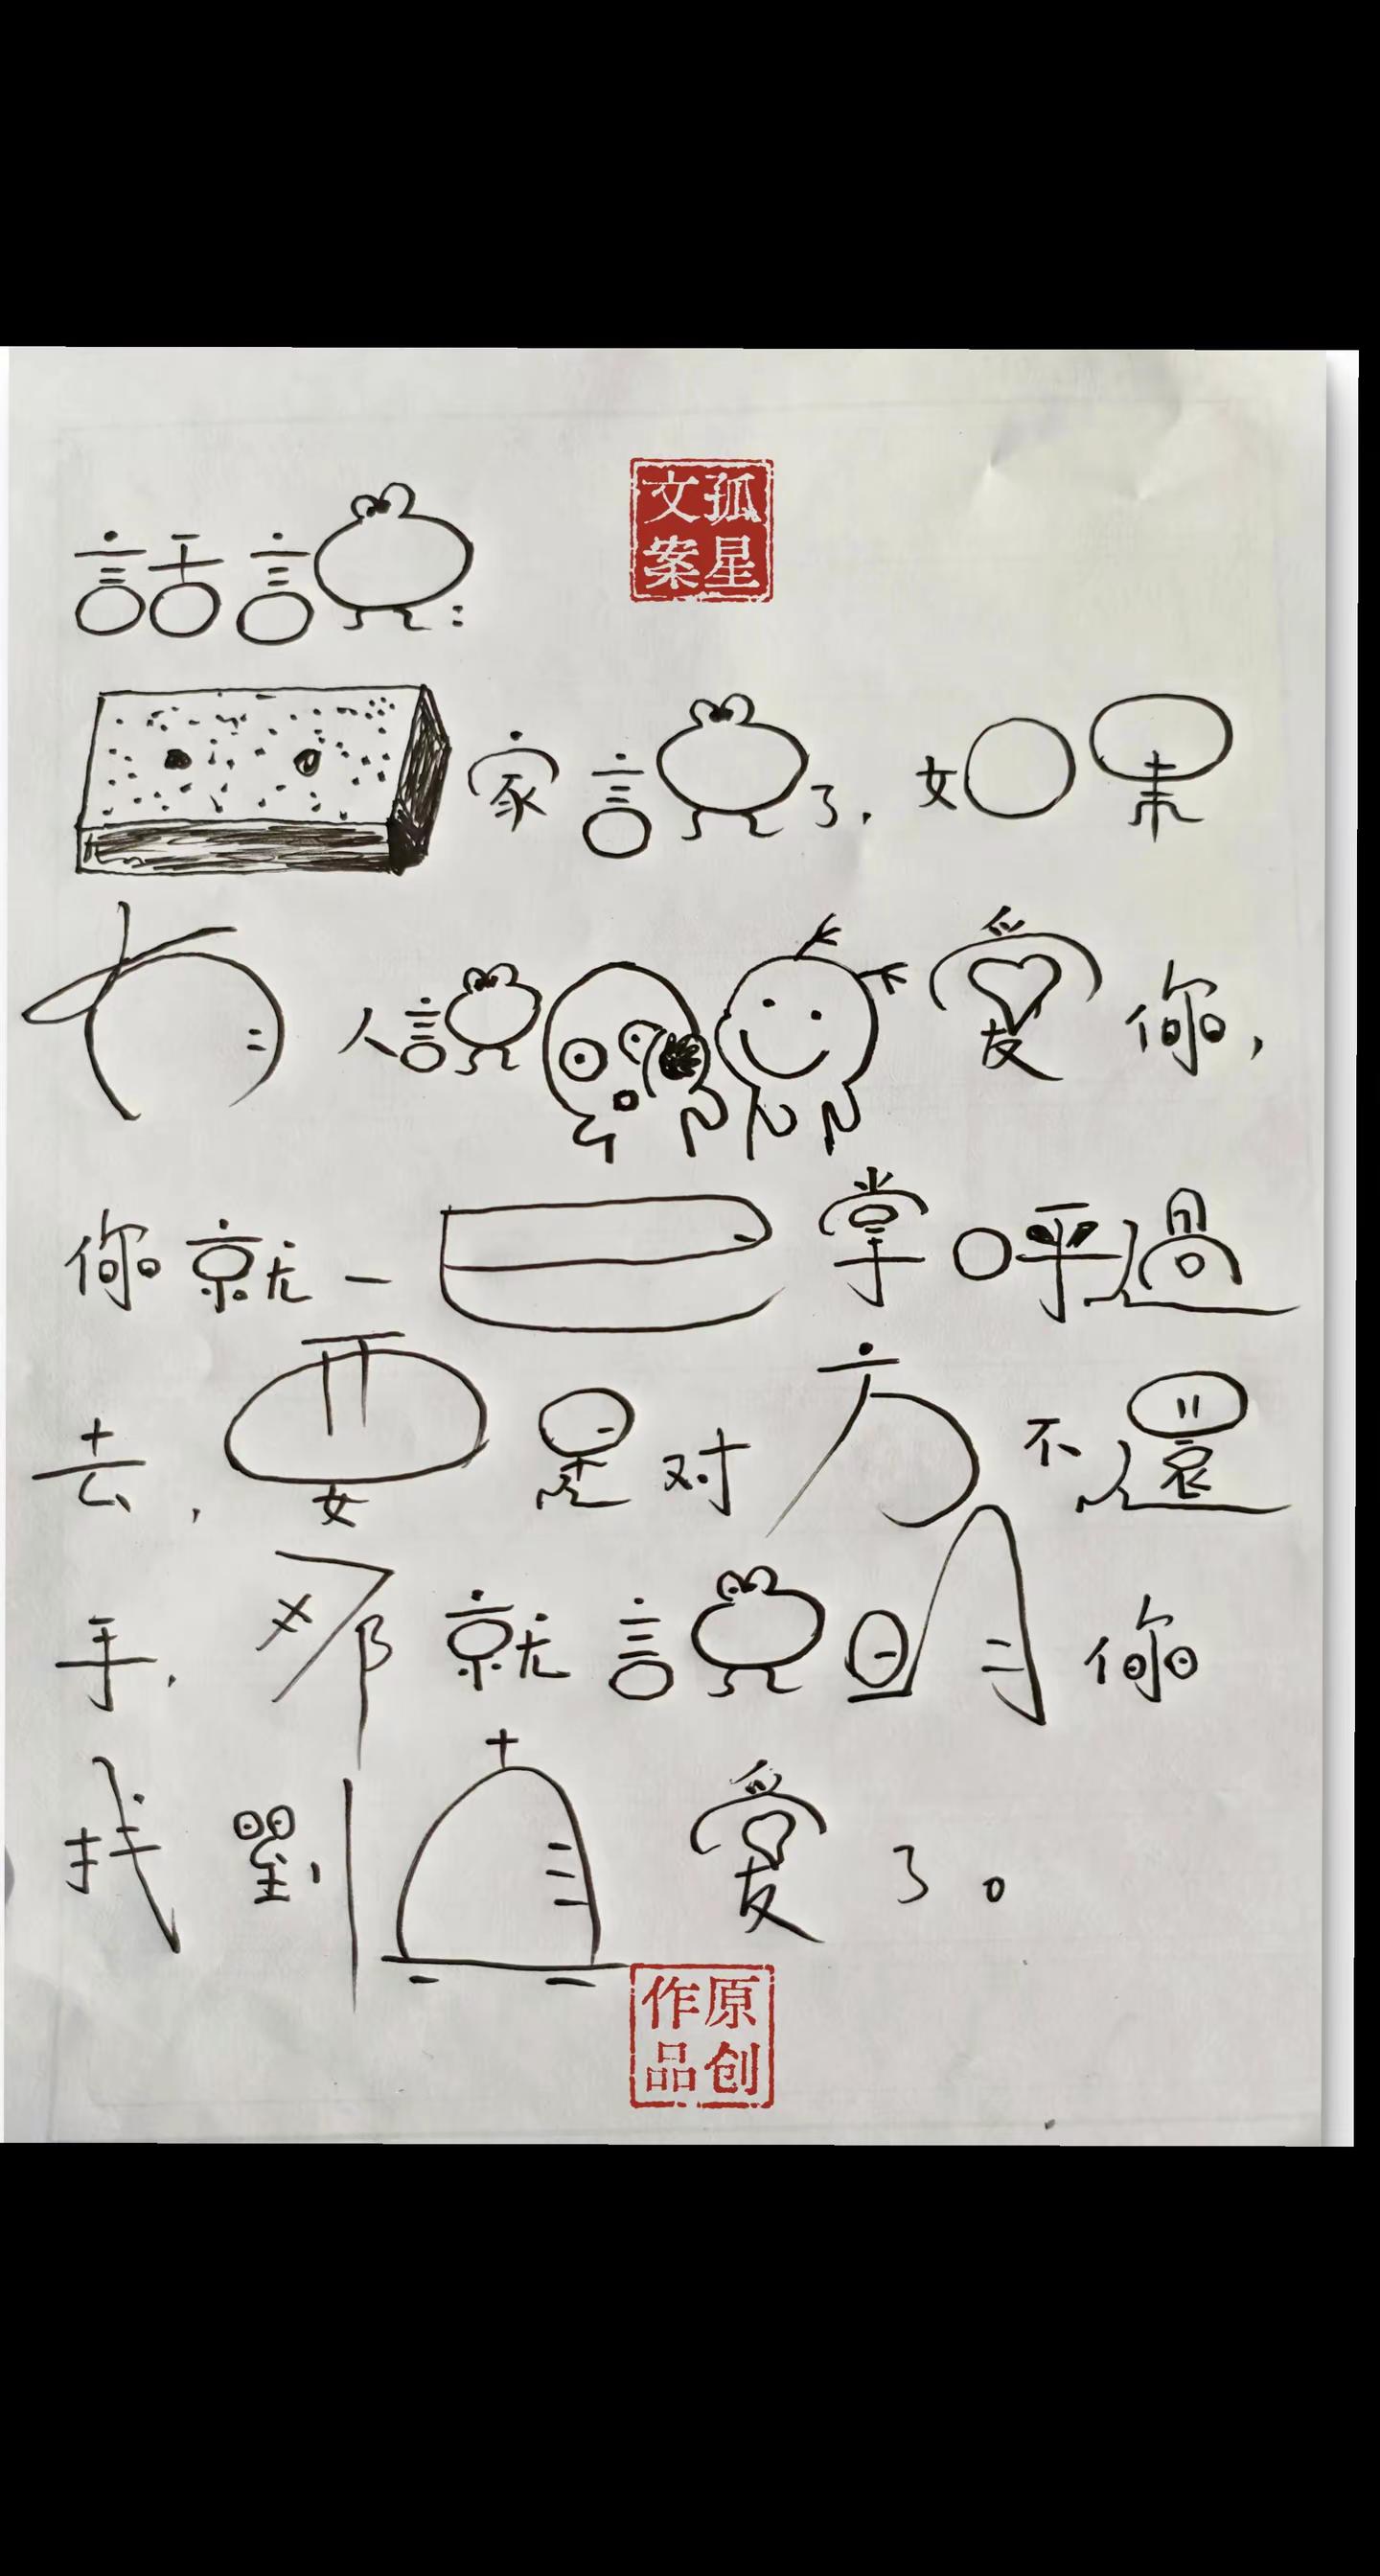 孤星
文案
話說:
家說了,如果
有人說愛你,
你就一巴掌呼過
去,要是对方不還
手,那就說明你
找到真愛了。
原创
作品